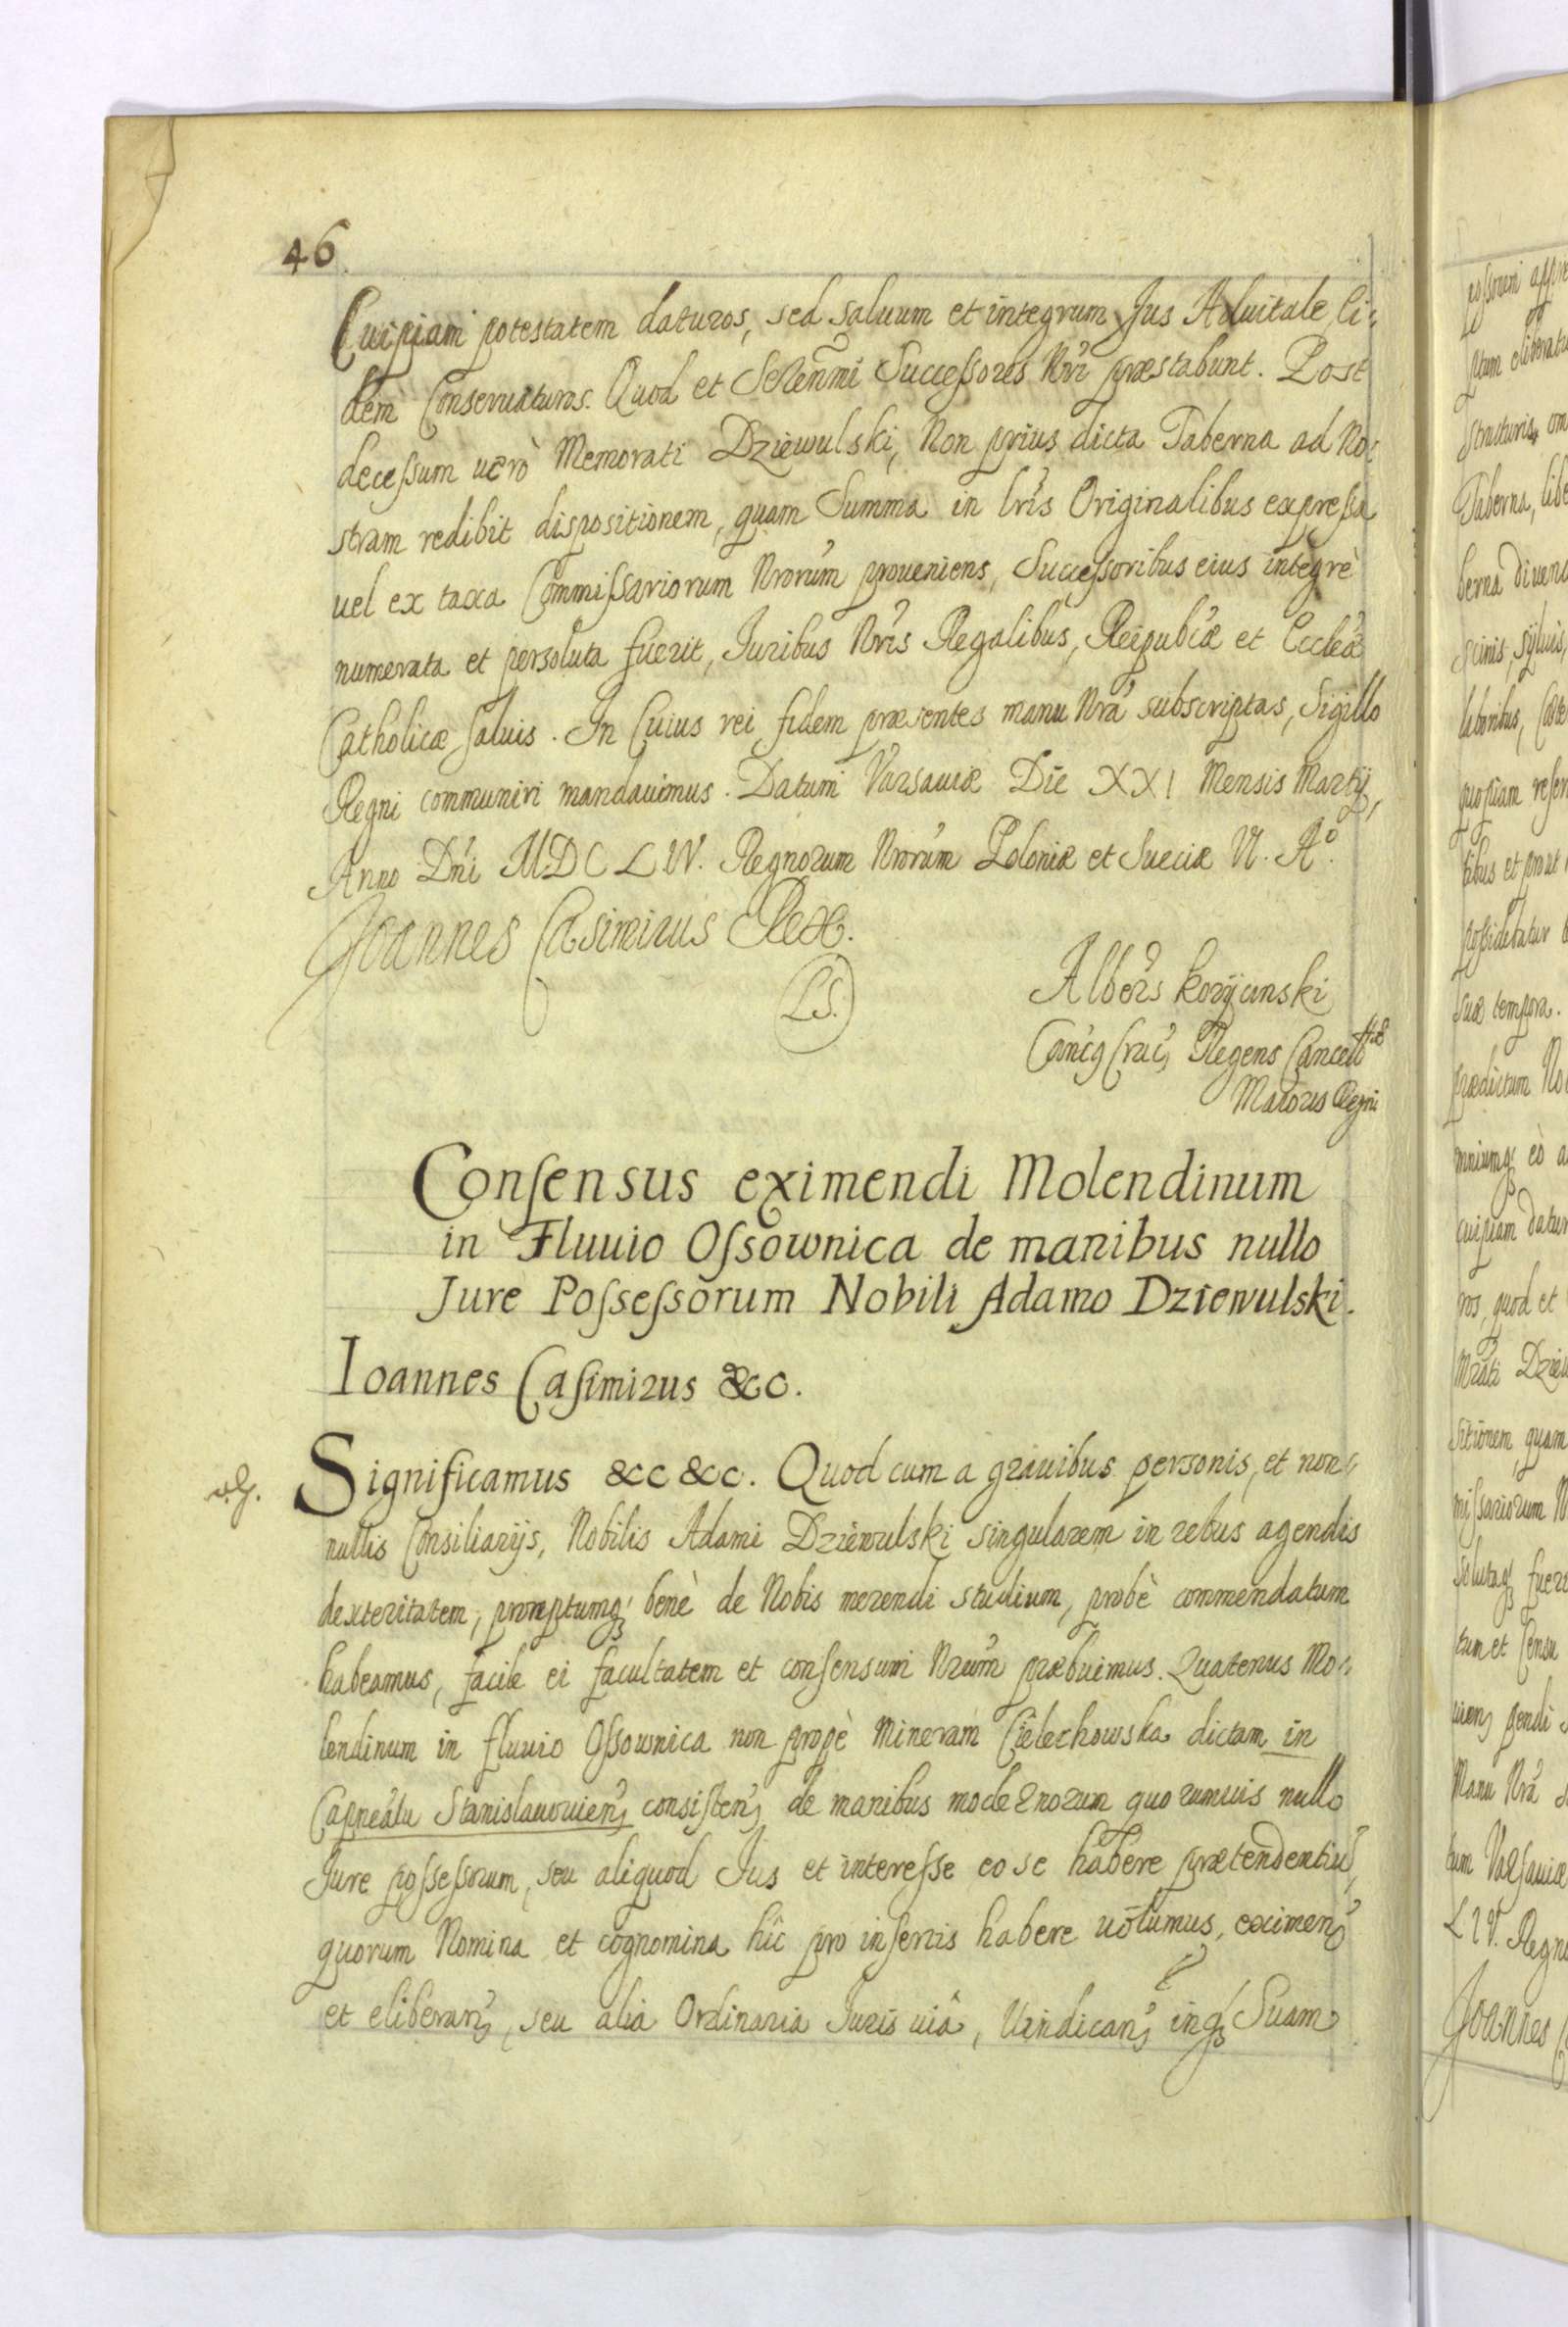 46.
Cuipiam potestatem daturos, sed saluum et integrum Jus Aduitale, Ei:
dem Conseruaturos. Quod et Serenm̃i Successores Nri præstabunt. Post
decessum uerò Memorati Dziewulski, Non prius dicta Taberna ad No:
stram redibit dispositionem, quam Summa in lris Originalibus expressa
uel ex taxa Commissariorum Nrorum proueniens, Successoribus eius integrè
numerata et persoluta fuerit, Juribus Nris Regalibus, Reipubcæ et Ecclæ
Catholicæ saluis. In Cuius rei fidem præsentes manu Nrá subscriptas, Sigillo
Regni communiri mandauimus. Datum Varsauiæ Die XXI Mensis Martÿ,
Anno Dni MDCLIV. Regnorum Nrorum Poloniæ et Sueciæ VI. Aº.
Joannes Casimirus Rex.
(LS.)
Albers Koryciński
Cancg Crac, Regens Cancellriæ
Maioris Regni
Consensus eximendi Molendinum
in Fluuio Ossownica de manibus nullo
Jure Possessorum Nobili Adamo Dziewulski.
Ioannes Casimirus &c.
Significamus &c &c. Quod cum a grauibus personis, et non:
nullis Consiliarijs, Nobilis Adami Dziewulski singularem in rebus agendis
dexteritatem, promptumq benè de Nobis merendi studium, probè commendatum
habeamus, facile ei facultatem et consensum Nrum præbuimus. Quatenus Mo:
lendinum in fluuio Ossownica non propè Mineram Cielechowska dictam in
Capneatu Stanislauouien, consisten, de manibus modernorum quorumuis nullo
Jure possessorum, seu aliquod Jus et interesse eo se habere prætendentiu,
quorum Nomina et cognomina hîc pro insertis habere uolumus, eximen
et eliberan, seu alia Ordinaria Juris uiâ, Vindican, inq Suam